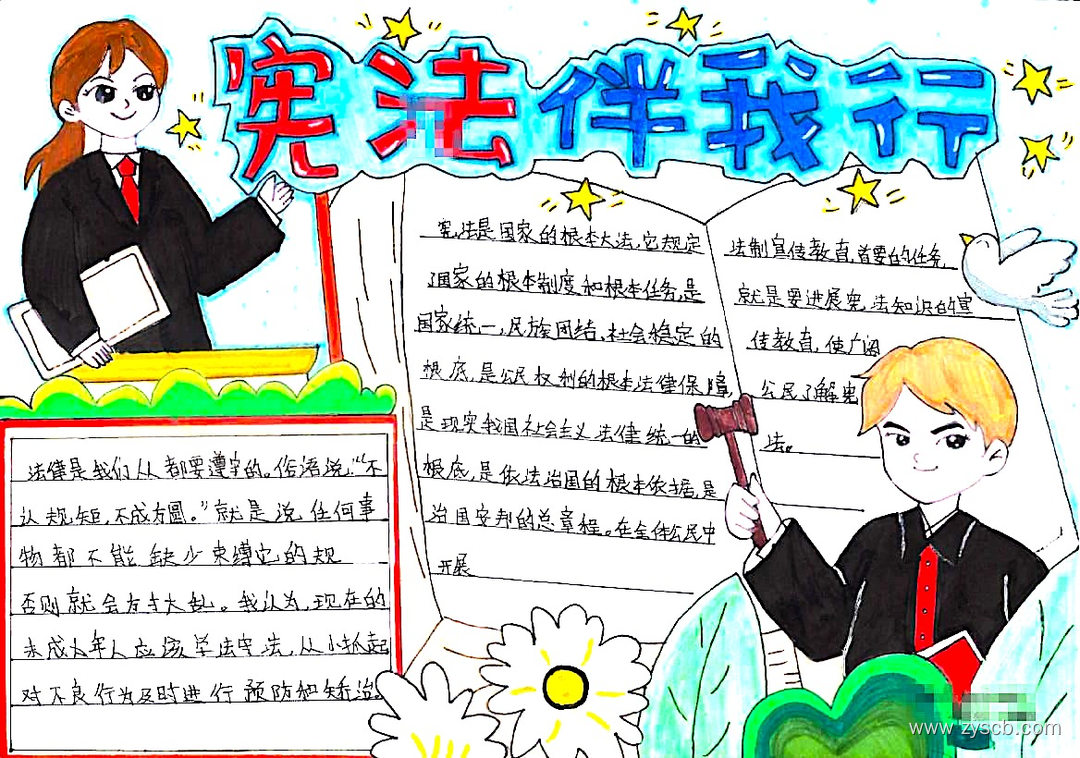 宪法伴我行
宪法是国家的根本大法,它规定
了国家的根本制度和根本任务,是
国家统一,民族团结,社会稳定的
根底,是公民权利的根本法律保障
是现实我国社会主义法律统一的
根底,是依法治国的根本依据,是
治国安邦的总章程。在全体公民中
开展
法制宣传教育,首要的任务
就是要进展宪法知识的宣
传教育,使广阔
公民了解宪
法。
法律是我们从都要遵守的。俗语说,“不
认规矩,不成方圆。”就是说任何事
物都不能缺少束缚它的规
否则就会方寸大乱。我认为,现在的
未成年人应该学法宪法,从小抓起
对不良行为及时进行预防和矫治。
www.zyscb.com